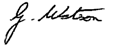 G. Watson